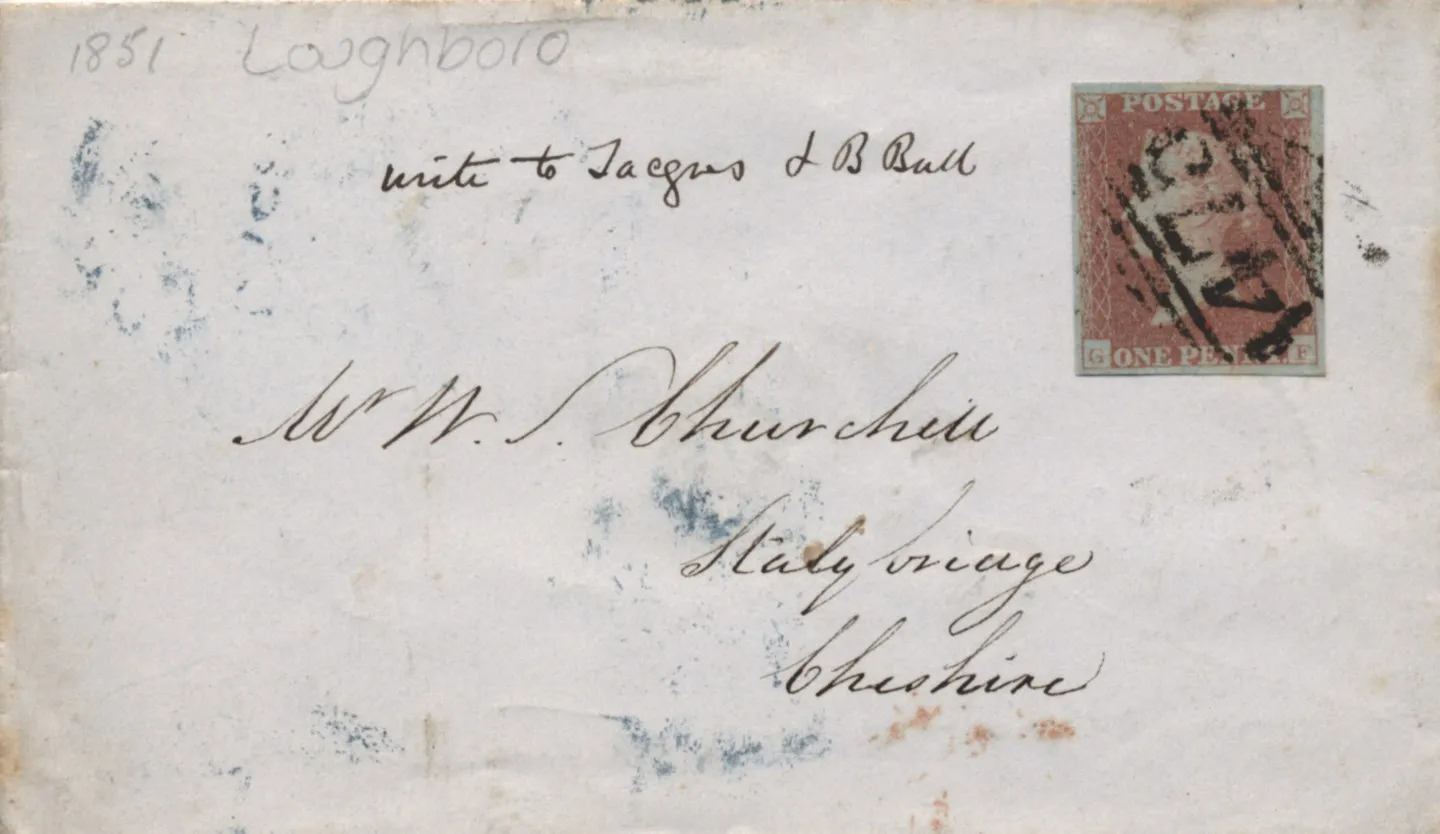 1851 Loughboro
write to Jacques & B Ball
POSTAGE
G ONE PENNY F
Mr W. S. Churchill
Stalybridge
Cheshire